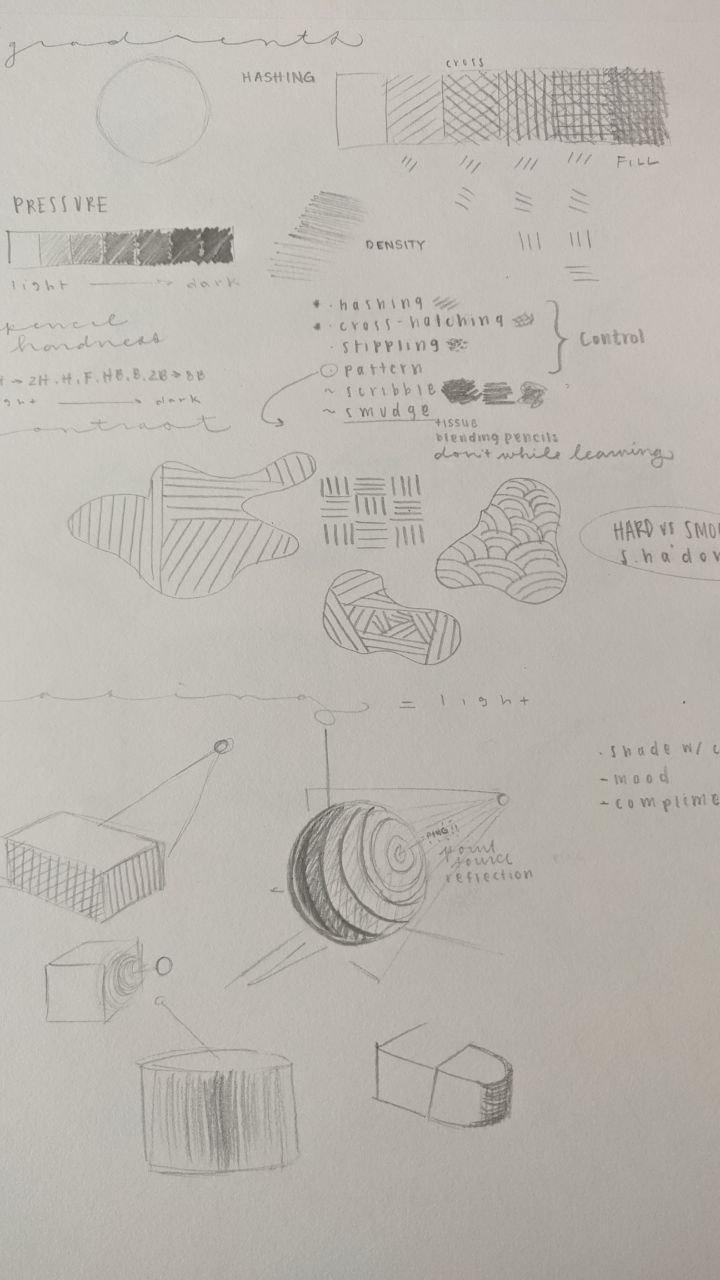 gradients
HASHING
cross
FILL
PRESSURE
DENSITY
light dark
pencil
hardness
→ 2H, H, F, HB, B, 2B → 8B
dark
contrast
• hashing
• cross-hatching
· stippling
pattern
~ scribble
~ smudge
Control
tissue
blending pencils
don't while learning
HARD vs SMO
shadow
= light
· shade w/ c
- mood
- complime
PING!!
point
source
reflection